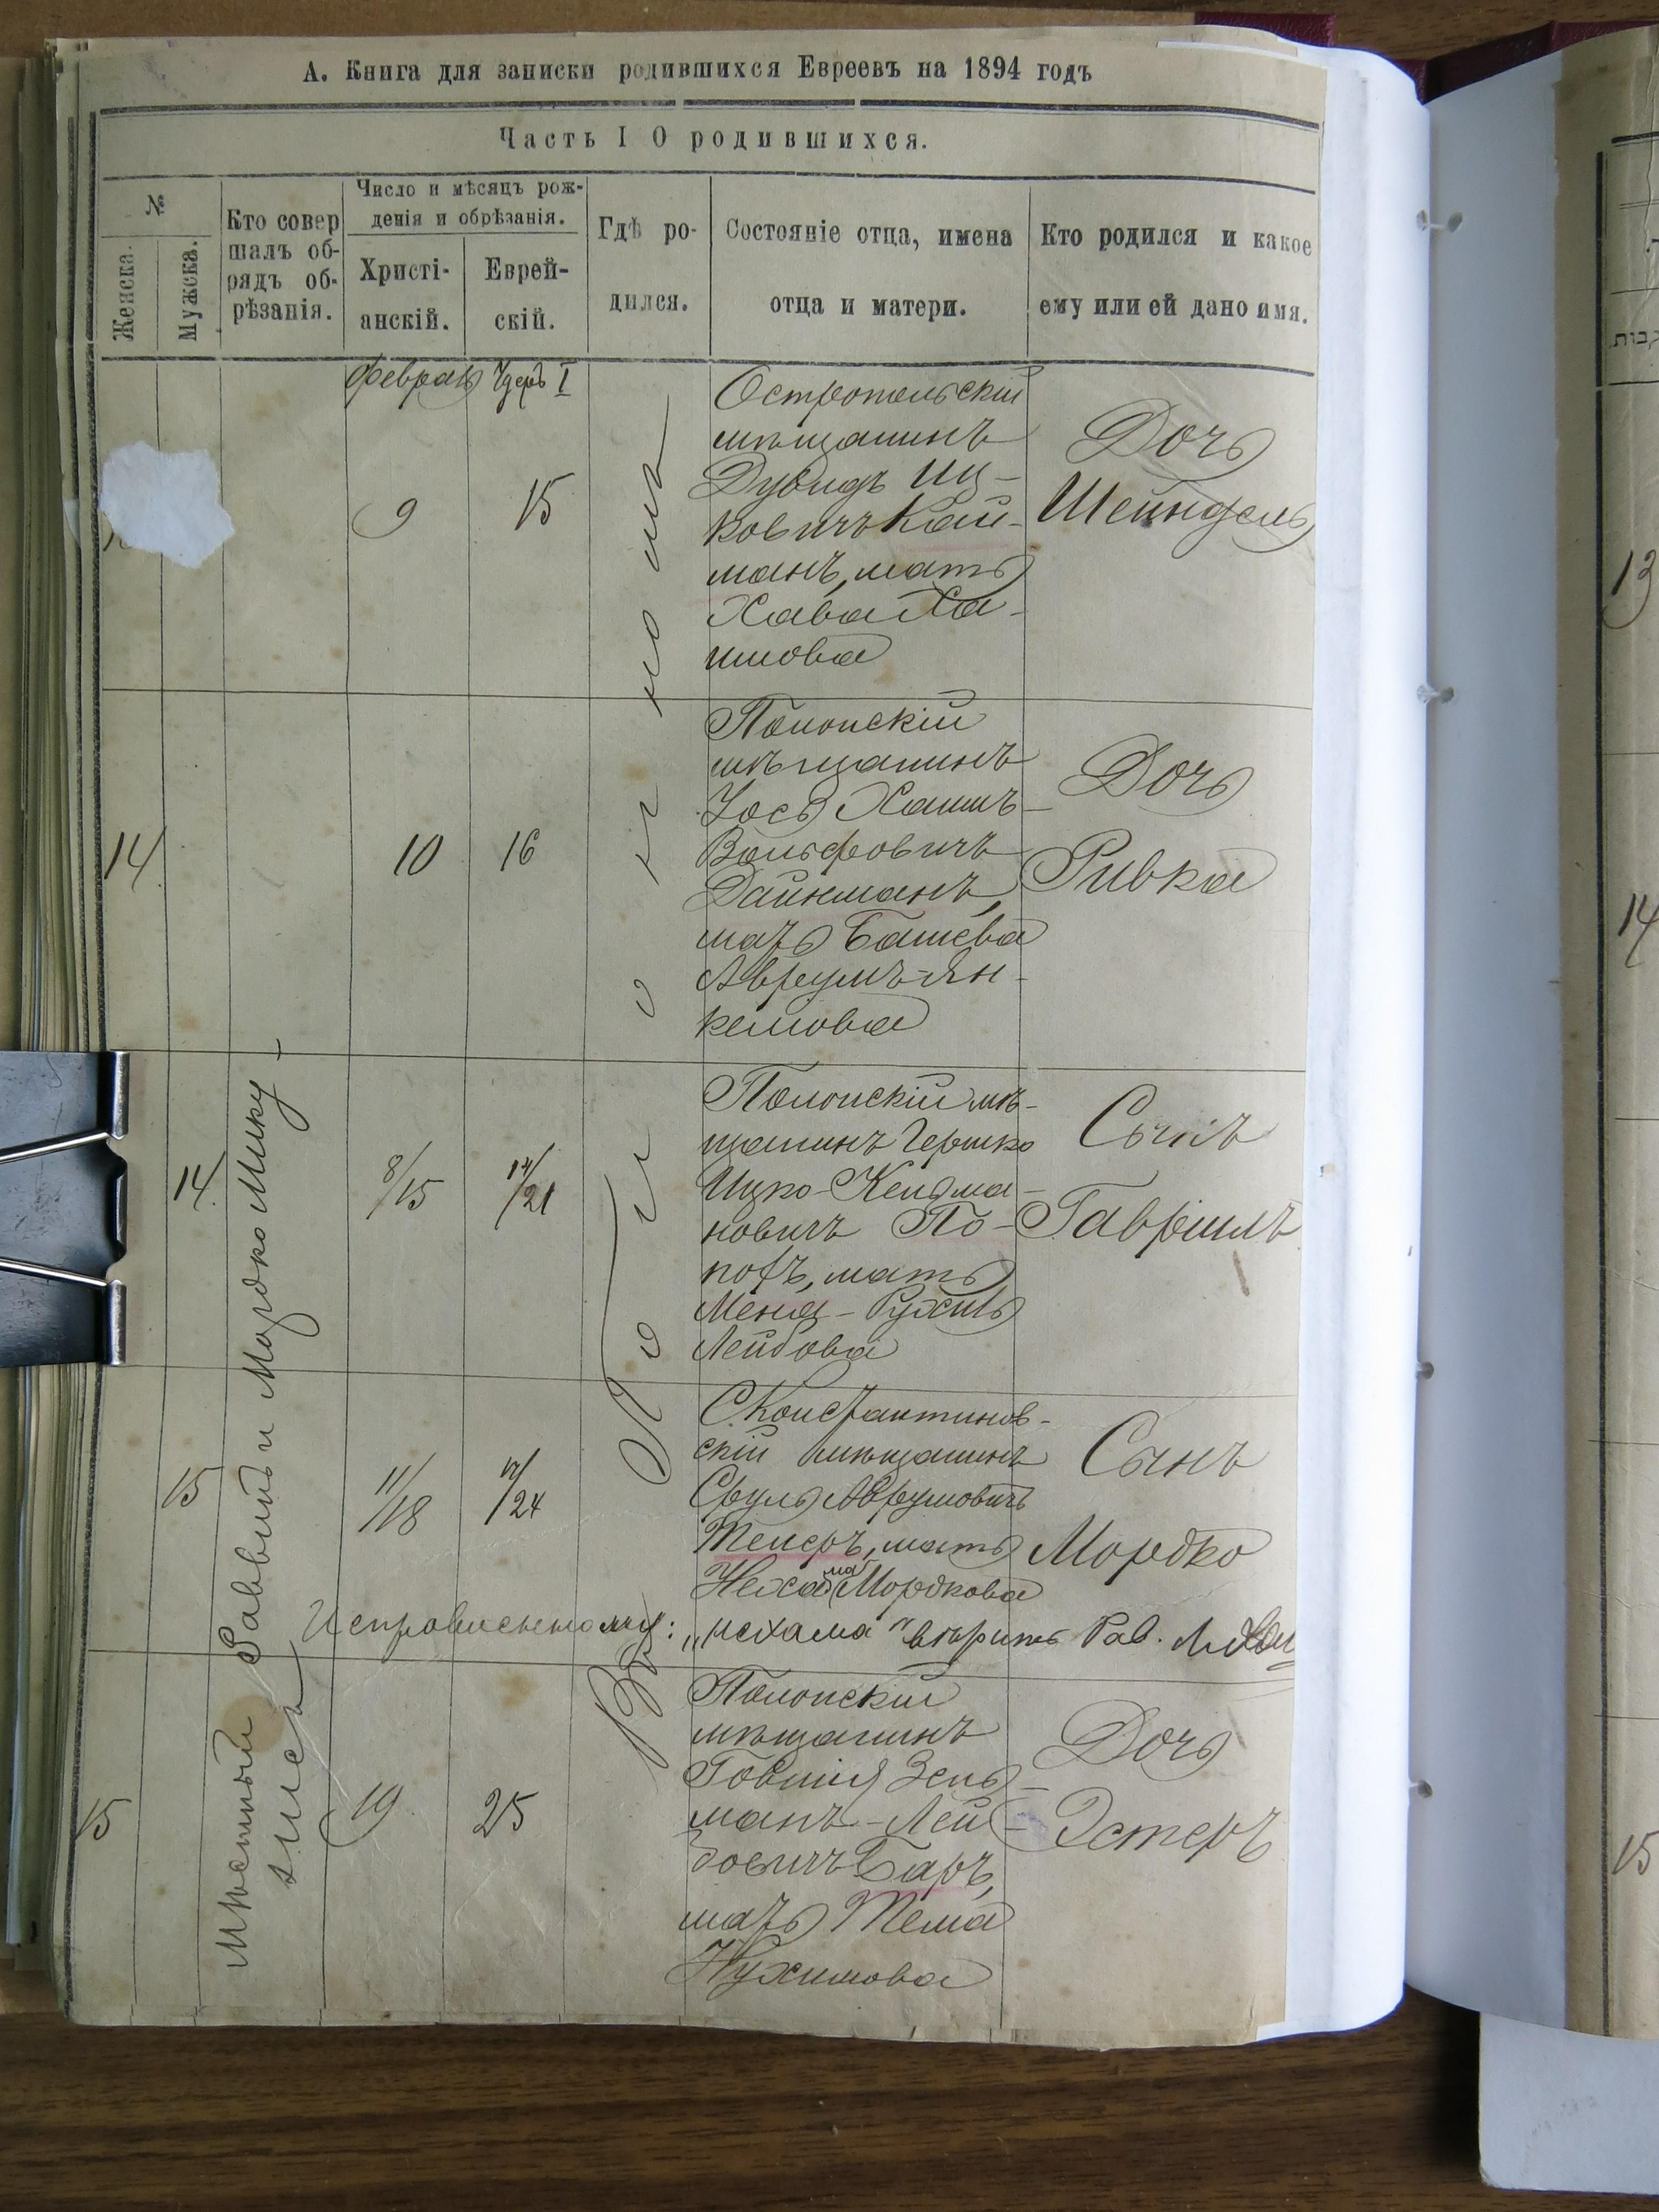 А. Книга для записки родившихся Евреевъ на 1894 годъ
Часть I О родившихся.
№
Женска.
Мужска.
Кто совер
шалъ об-
рядъ об-
рѣзанія.
Число и мѣсяцъ рож-
денія и обрѣзанія.
Христі-
анскій.
Еврей-
скій.
Гдѣ ро-
дился.
Состояніе отца, имена
отца и матери.
Кто родился и какое
ему или ей дано имя.
Февраль
Адеръ I
9
15
Остропольскій
мѣщанинъ
Дувидъ Иц-
ковичъ Кай-
манъ, мать
Хава Ха-
имова
Дочь
Шейндель
14
10
16
Полонскій
мѣщанинъ
Іось Хаимъ-
Вольфовичъ
Дайнманъ,
мать Башева
Аврумъ-Ян-
келова
Дочь
Ривка
14
8/15
14/21
Полонскій мѣ-
щанинъ Гершко
Ицко-Кельма-
новичъ По-
потъ, мать
Меня-Рухль
Лейбова
Сынъ
Гавріилъ
15
11/18
17/24
С. Константинов-
скій мѣщанинъ
Сруль Аврумовичъ
Теперъ, мать
Нехама Мордкова
Сынъ
Мордко
Исправленному: „Нехама" вѣрить Рав.
15
19
25
Полонскій
мѣщанинъ
Говшія Зель-
манъ-Лей-
бовичъ Баръ,
мать Тема
Нухимова
Дочь
Эстеръ
Мѣстный Раввинъ и Мордко Мику-
лисъ